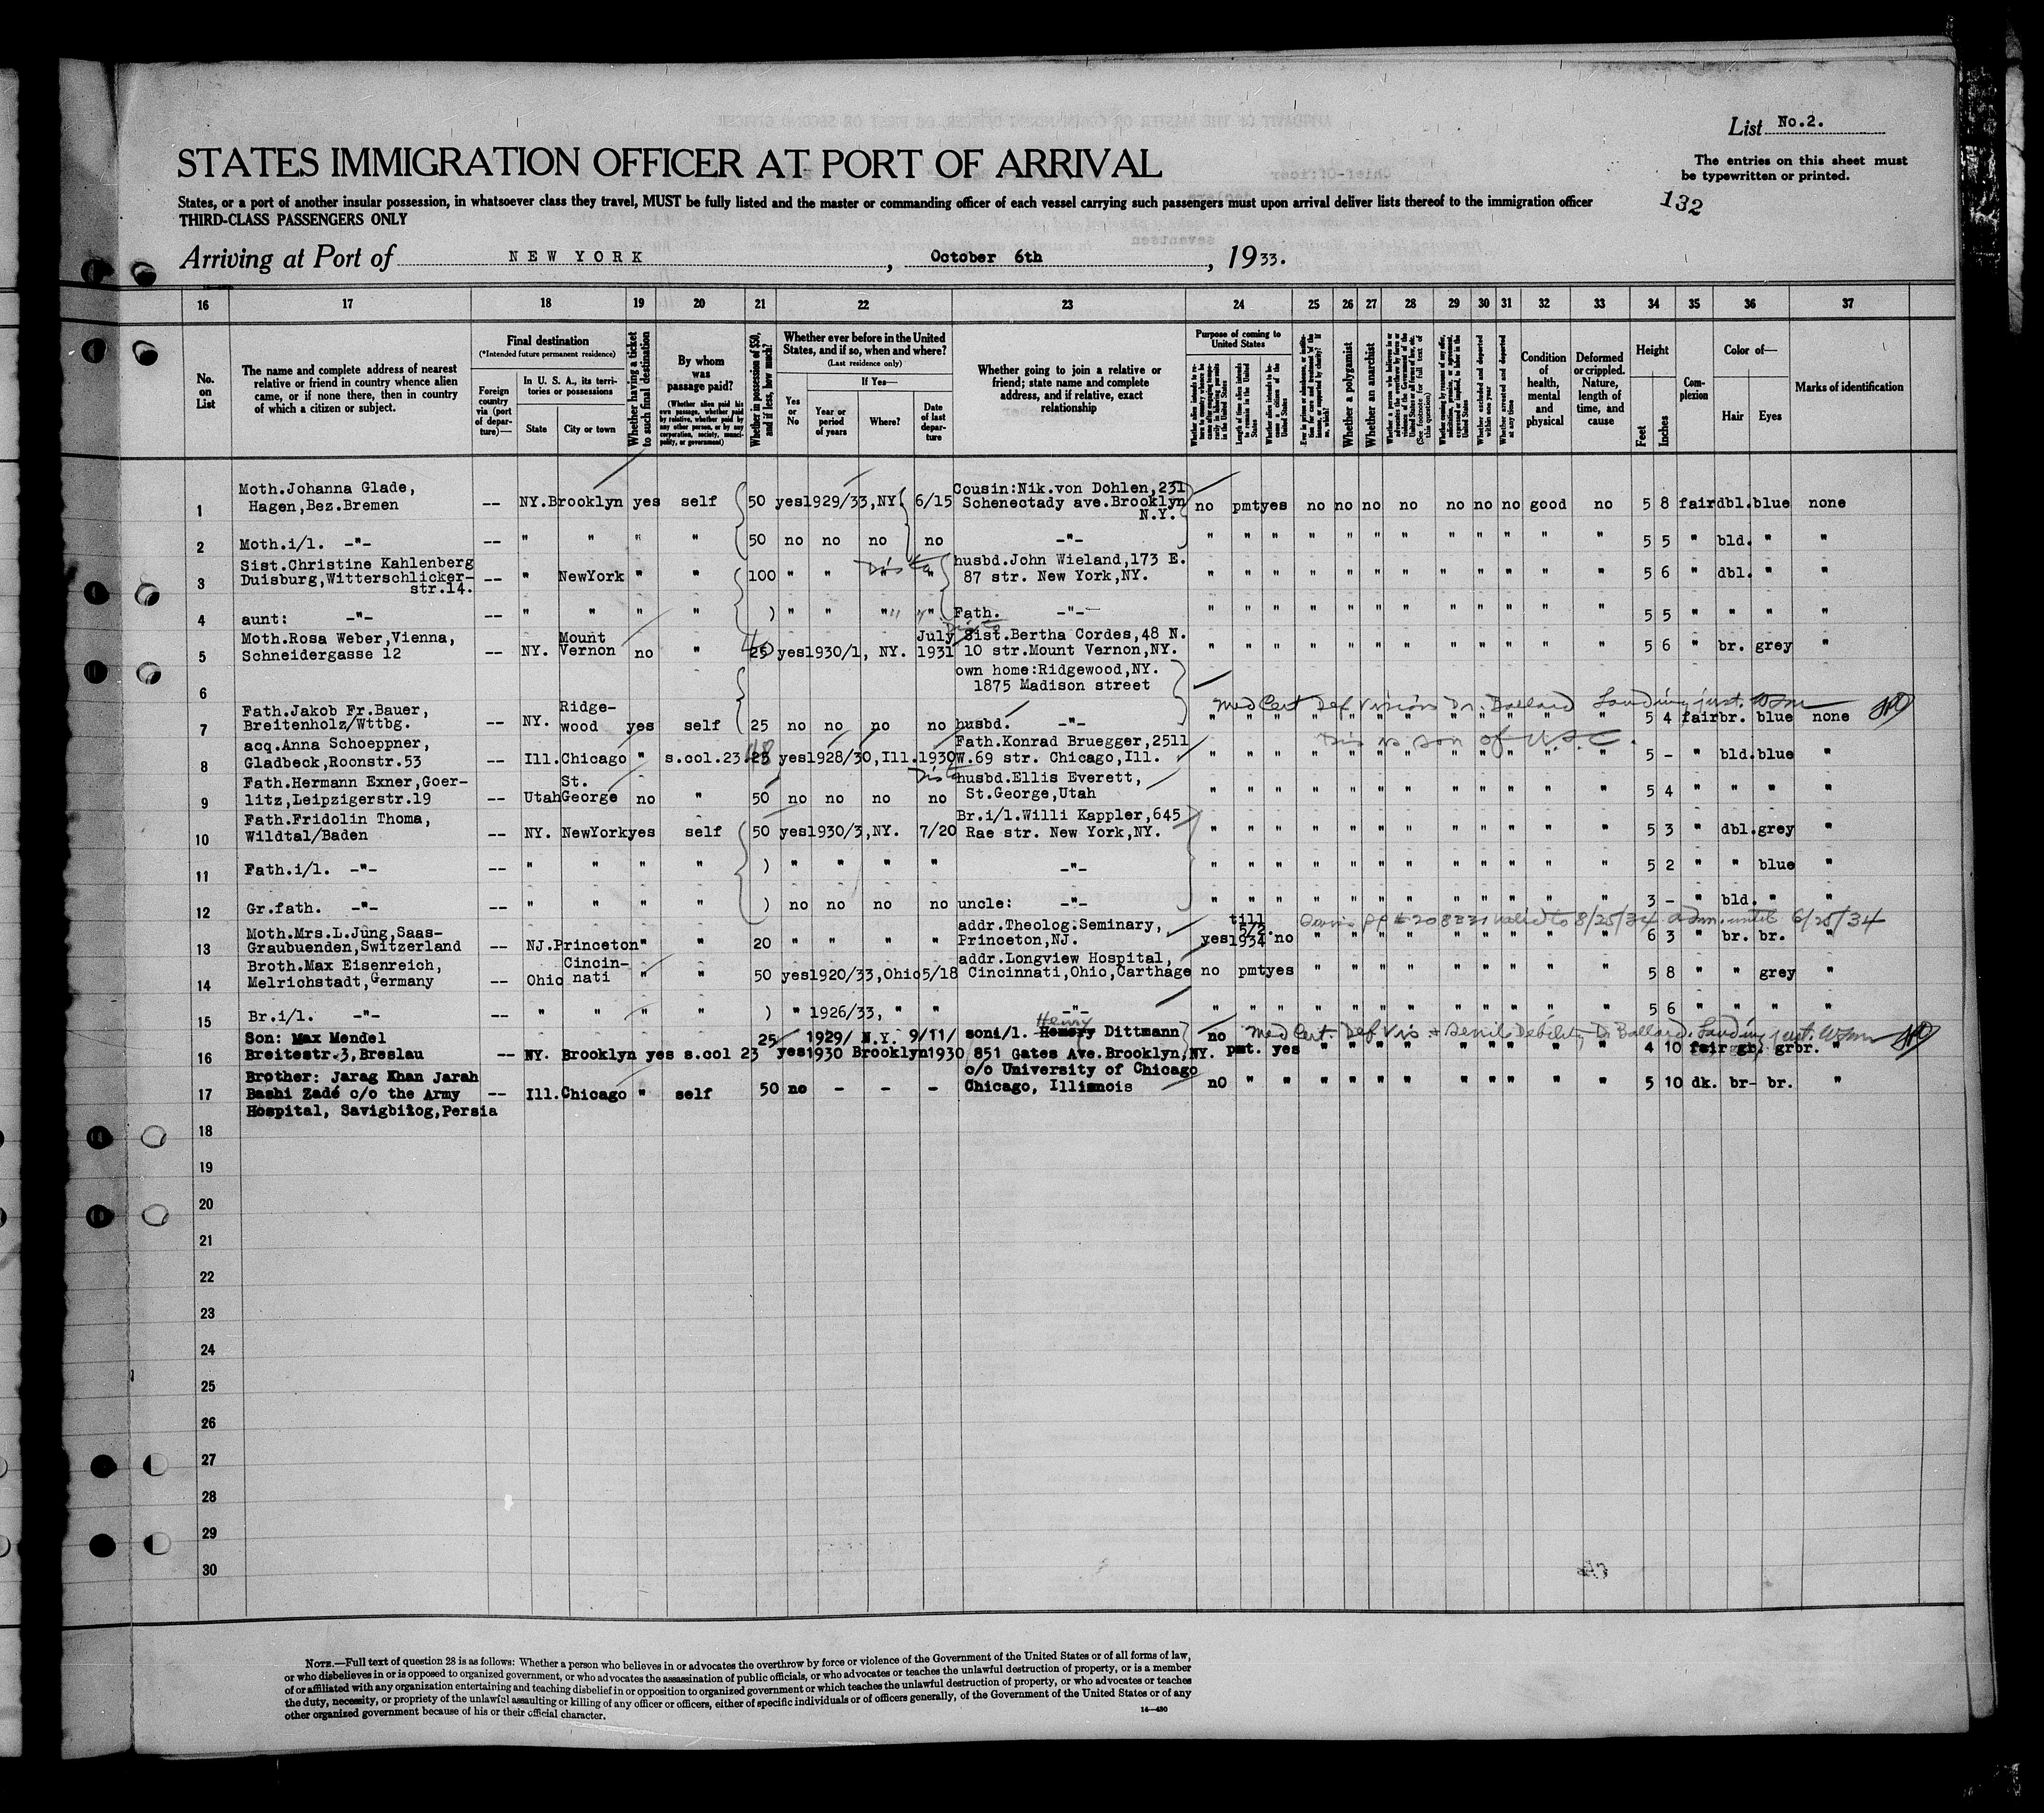 List No.2.
STATES IMMIGRATION OFFICER AT PORT OF ARRIVAL
The entries on this sheet must
be typewritten or printed.
States, or a port of another insular possession, in whatsoever class they travel, MUST be fully listed and the master or commanding officer of each vessel carrying such passengers must upon arrival deliver lists thereof to the immigration officer
THIRD-CLASS PASSENGERS ONLY
132
Arriving at Port of NEW YORK, October 6th, 1933.
16 17 18 19 20 21 22 23 24 25 26 27 28 29 30 31 32 33 34 35 36 37
No. on List
The name and complete address of nearest relative or friend in country whence alien came, or if none there, then in country of which a citizen or subject.
Final destination
(*Intended future permanent residence)
Foreign country via (port of departure)—
In U. S. A., its territories or possessions
State
City or town
Whether having a ticket to such final destination
By whom was passage paid?
(Whether alien paid his own passage, whether paid by relative, whether paid by any other person, or by any corporation, society, municipality, or government)
Whether in possession of $50, and if less, how much?
Whether ever before in the United States, and if so, when and where?
(Last residence only)
Yes or No
If Yes—
Year or period of years
Where?
Date of last departure
Whether going to join a relative or friend; state name and complete address, and if relative, exact relationship
Purpose of coming to United States
Length of time alien intends to remain in the United States
Whether alien intends to become a citizen of the United States
Whether a polygamist
Whether an anarchist
Whether excluded and deported within one year
Whether arrested and deported at any time
Condition of health, mental and physical
Deformed or crippled. Nature, length of time, and cause
Height
Feet
Inches
Complexion
Color of—
Hair
Eyes
Marks of identification
1 Moth.Johanna Glade, Hagen,Bez.Bremen -- NY. Brooklyn yes self 50 yes 1929/33,NY 6/15 Cousin:Nik.von Dohlen,231 Schenectady ave.Brooklyn N.Y. no pmt yes no no no no no no no good no 5 8 fair dbl. blue none
2 Moth.i/l. -"- -- " " " " 50 no no no no -"- " " " " " " " " " " " " 5 5 " bld. " "
3 Sist.Christine Kahlenberg Duisburg,Witterschlicker-str.14. -- " NewYork " " 100 " " " " husbd.John Wieland,173 E. 87 str. New York,NY. " " " " " " " " " " " " 5 6 " dbl. " "
4 aunt: -"- -- " " " " ) " " " " Fath. -"- " " " " " " " " " " " " 5 5 " " " "
5 Moth.Rosa Weber,Vienna, Schneidergasse 12 -- NY. Mount Vernon no " 25 yes 1930/1, NY. July 1931 Sist.Bertha Cordes,48 N. 10 str.Mount Vernon,NY. " " " " " " " " " " " " 5 6 " br. grey "
6 own home:Ridgewood,NY. 1875 Madison street
Med Cert Def Vision Dr. Ballard Landing just.
7 Fath.Jakob Fr.Bauer, Breitenholz/Wttbg. -- NY. Ridgewood yes self 25 no no no no husbd. -"- " " " " " " " " " " " " 5 4 fair br. blue none
8 acq.Anna Schoeppner, Gladbeck,Roonstr.53 -- Ill. Chicago " s.col.23. 25 48 yes 1928/30,Ill. 1930 Fath.Konrad Bruegger,2511 W.69 str. Chicago,Ill. " " " " " " " " " " " " 5 - " bld. blue "
9 Fath.Hermann Exner,Goerlitz,Leipzigerstr.19 -- Utah St. George no " 50 no no no no husbd.Ellis Everett, St.George,Utah " " " " " " " " " " " " 5 4 " " " "
10 Fath.Fridolin Thoma, Wildtal/Baden -- NY. NewYork yes self 50 yes 1930/3,NY. 7/20 Br.i/l.Willi Kappler,645 Rae str. New York,NY. " " " " " " " " " " " " 5 3 " dbl. grey "
11 Fath.i/l. -"- -- " " " " ) " " " " -"- " " " " " " " " " " " " 5 2 " " blue "
12 Gr.fath. -"- -- " " " " ) no no no no uncle: -"- " " " " " " " " " " " " 3 - " bld. " "
valid to 8/25/34 adm. until 6/25/34
13 Moth.Mrs.L.Jüng,Saas-Graubuenden,Switzerland -- NJ. Princeton " " 20 " " " " addr.Theolog.Seminary, Princeton,NJ. yes till 5/2. 1934 no " " " " " " " " " 6 3 " br. br. "
14 Broth.Max Eisenreich, Melrichstadt,Germany -- Ohio Cincinnati " " 50 yes 1920/33,Ohio 5/18 addr.Longview Hospital, Cincinnati,Ohio,Carthage no pmt yes " " " " " " " " " 5 8 " " grey "
15 Br.i/l. -"- -- " " " " ) " 1926/33, " " -"- " " " " " " " " " " " " 5 6 " " " "
Med Cert. Def Vis + Senile Debility Dr Ballard. Landing just.
16 Son: Max Mendel Breitestr.3,Breslau -- NY. Brooklyn yes s.col 23 25 yes 1929/1930 N.Y. Brooklyn 9/11/1930 soni/l. Henry Dittmann 851 Gates Ave.Brooklyn,NY. no pmt. yes " " " " " " " " " 4 10 fair gr. grbr. "
17 Brother: Jarag Khan Jarah Bashi Zadé c/o the Army Hospital, Savigbilog,Persia -- Ill. Chicago " self 50 no - - - c/o University of Chicago Chicago, Illinois no " " " " " " " " " " " 5 10 dk. br- br. "
18
19
20
21
22
23
24
25
26
27
28
29
30
NOTE.—Full text of question 28 is as follows: Whether a person who believes in or advocates the overthrow by force or violence of the Government of the United States or of all forms of law,
or who disbelieves in or is opposed to organized government, or who advocates the assassination of public officials, or who advocates or teaches the unlawful destruction of property, or is a member
of or affiliated with any organization entertaining and teaching disbelief in or opposition to organized government or which teaches the unlawful destruction of property, or who advocates or teaches
the duty, necessity, or propriety of the unlawful assaulting or killing of any officer or officers, either of specific individuals or of officers generally, of the Government of the United States or of any
other organized government because of his or their official character.
14—430